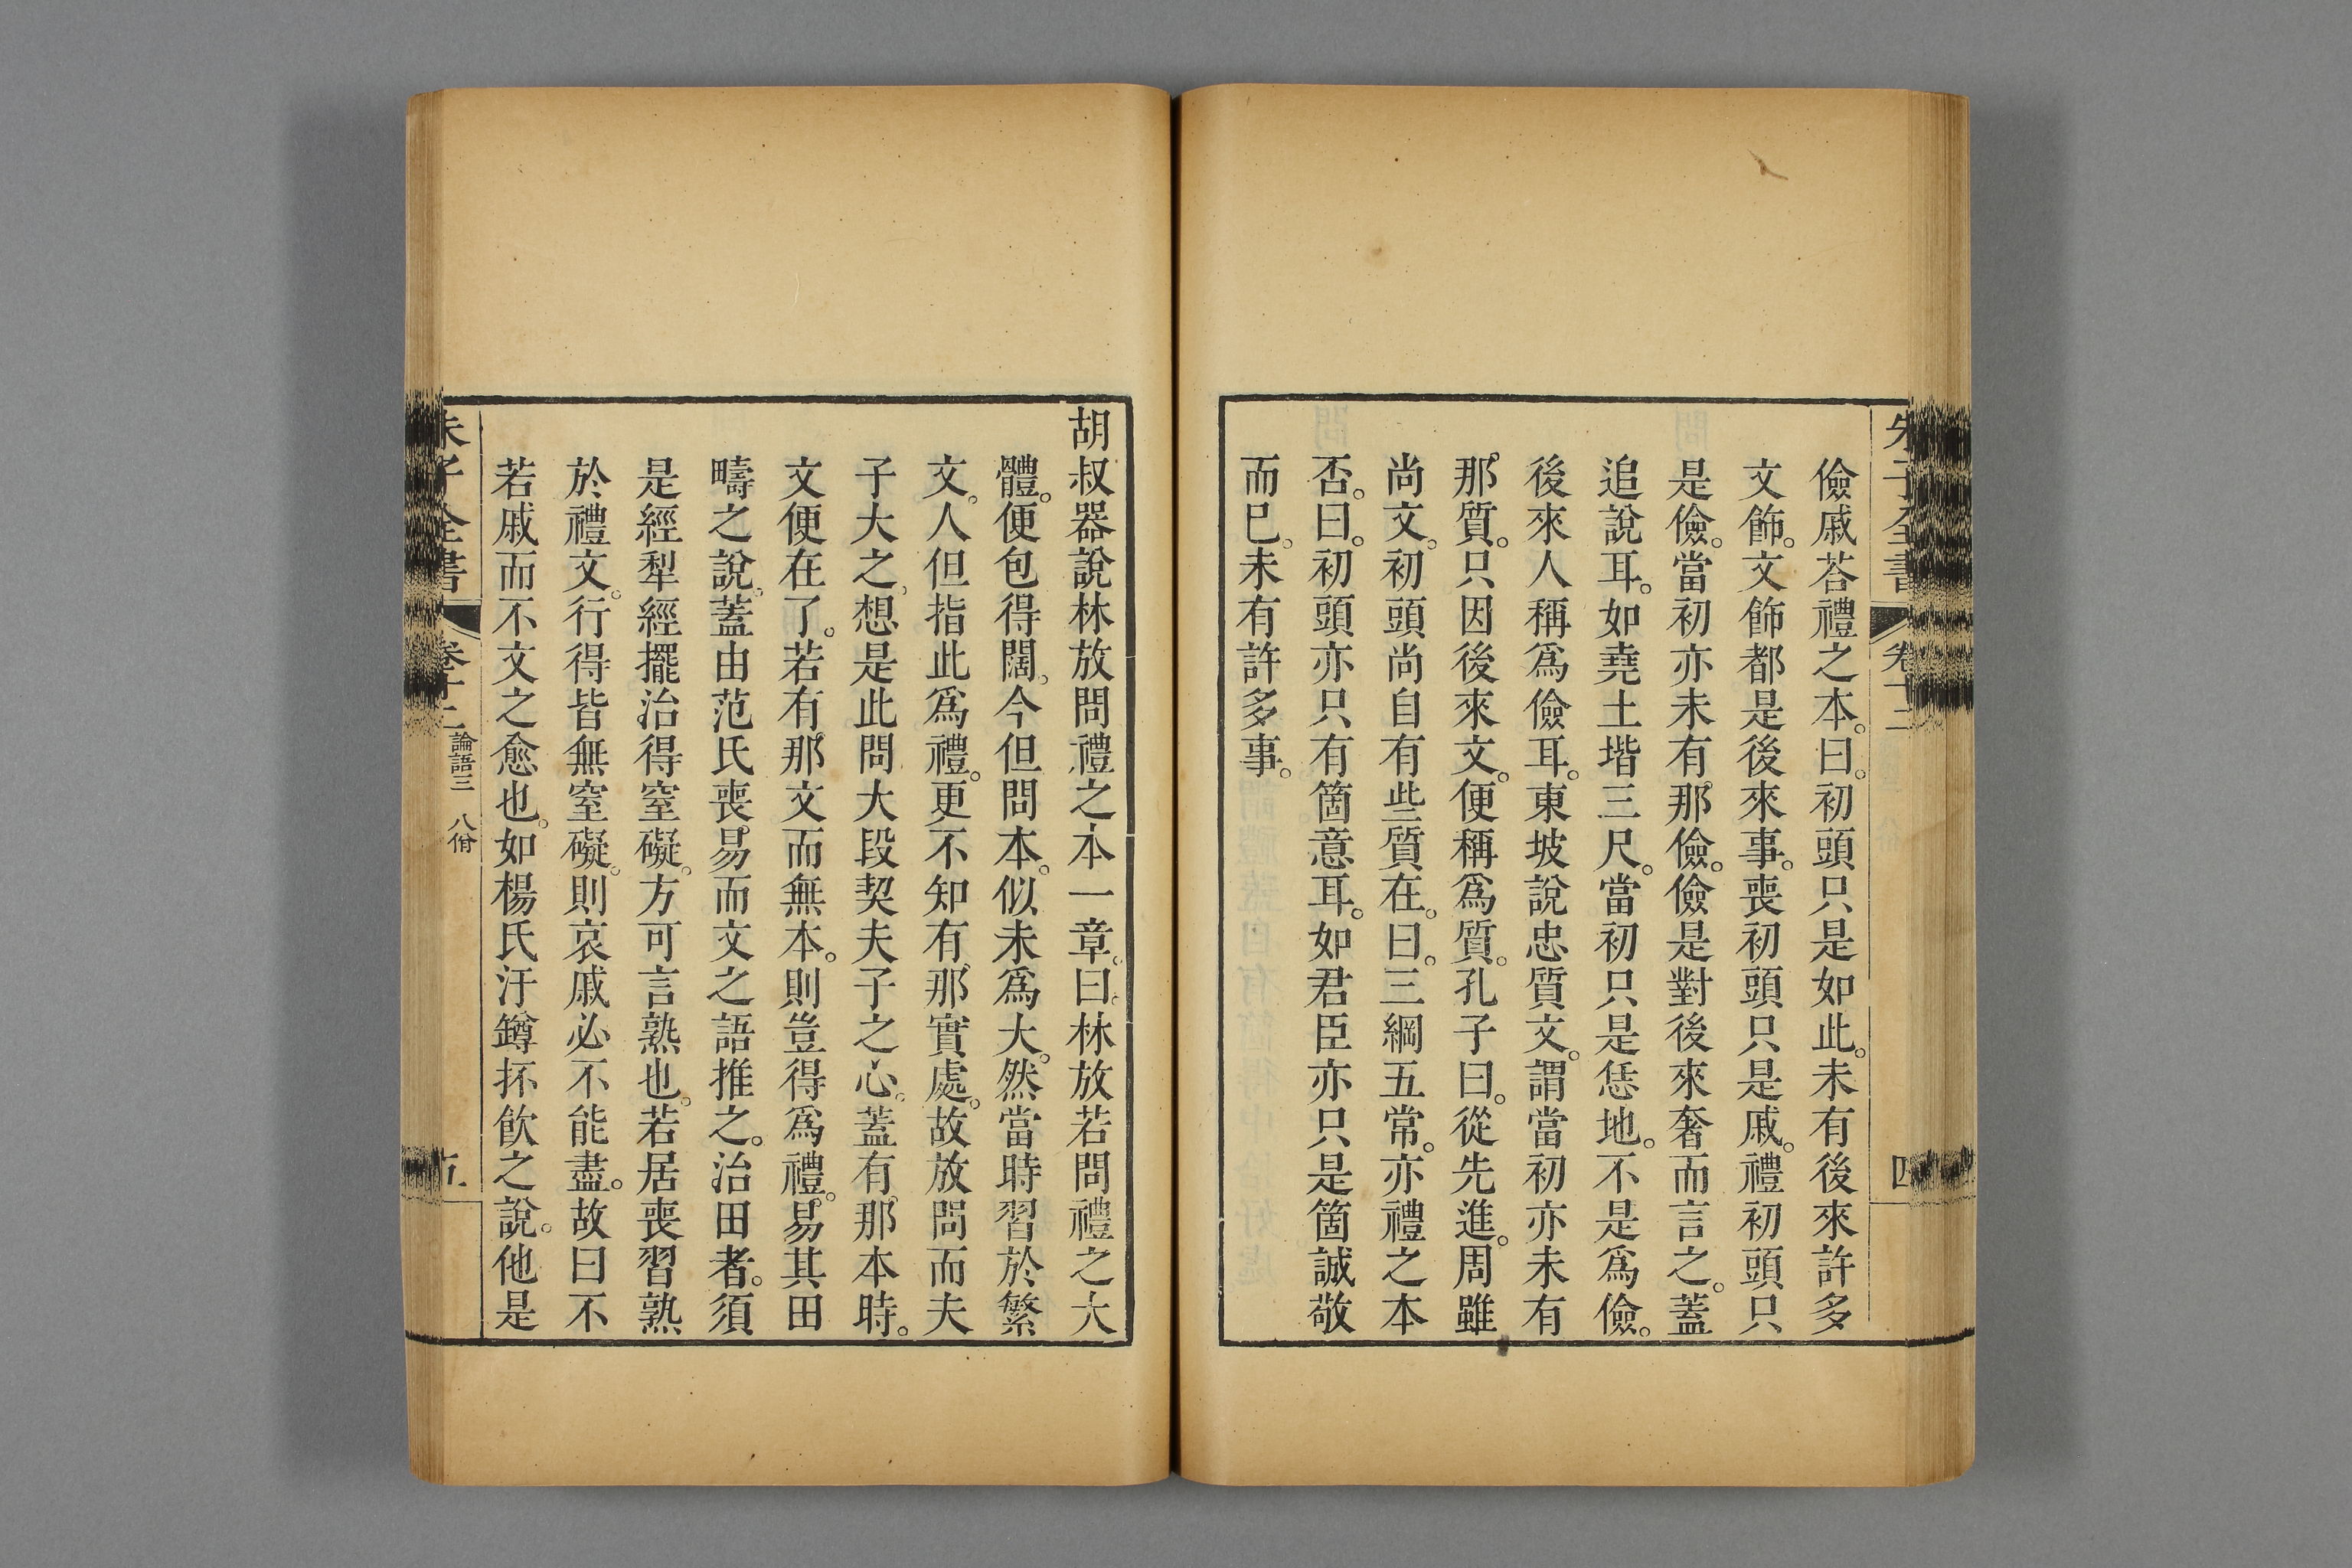 朱子全書 卷十二 四
儉戚荅禮之本。曰。初頭只是如此。未有後來許多
文飾。文飾都是後來事。喪初頭只是戚。禮初頭只
是儉。當初亦未有那儉。儉是對後來奢而言之。蓋
追說耳。如堯土堦三尺。當初只是恁地。不是爲儉。
後來人稱爲儉耳。東坡說忠質文。謂當初亦未有
那質。只因後來文。便稱爲質。孔子曰。從先進。周雖
尚文。初頭尚自有些質在。曰。三綱五常。亦禮之本
否。曰。初頭亦只有箇意耳。如君臣亦只是箇誠敬
而已。未有許多事。
胡叔器說林放問禮之本一章。曰。林放若問禮之大
體。便包得闊。今但問本。似未爲大。然當時習於繁
文。人但指此爲禮。更不知有那實處。故放問而夫
子大之。想是此問大段契夫子之心。蓋有那本時。
文便在了。若有那文而無本。則豈得爲禮。易其田
疇之說。蓋由范氏喪易而文之語推之。治田者。須
是經犁經擺治得窒礙。方可言熟也。若居喪習熟
於禮文。行得皆無窒礙。則哀戚必不能盡。故曰不
若戚而不文之愈也。如楊氏汙罇抔飮之說。他是
朱子全書 卷十二 論語三 八佾 五